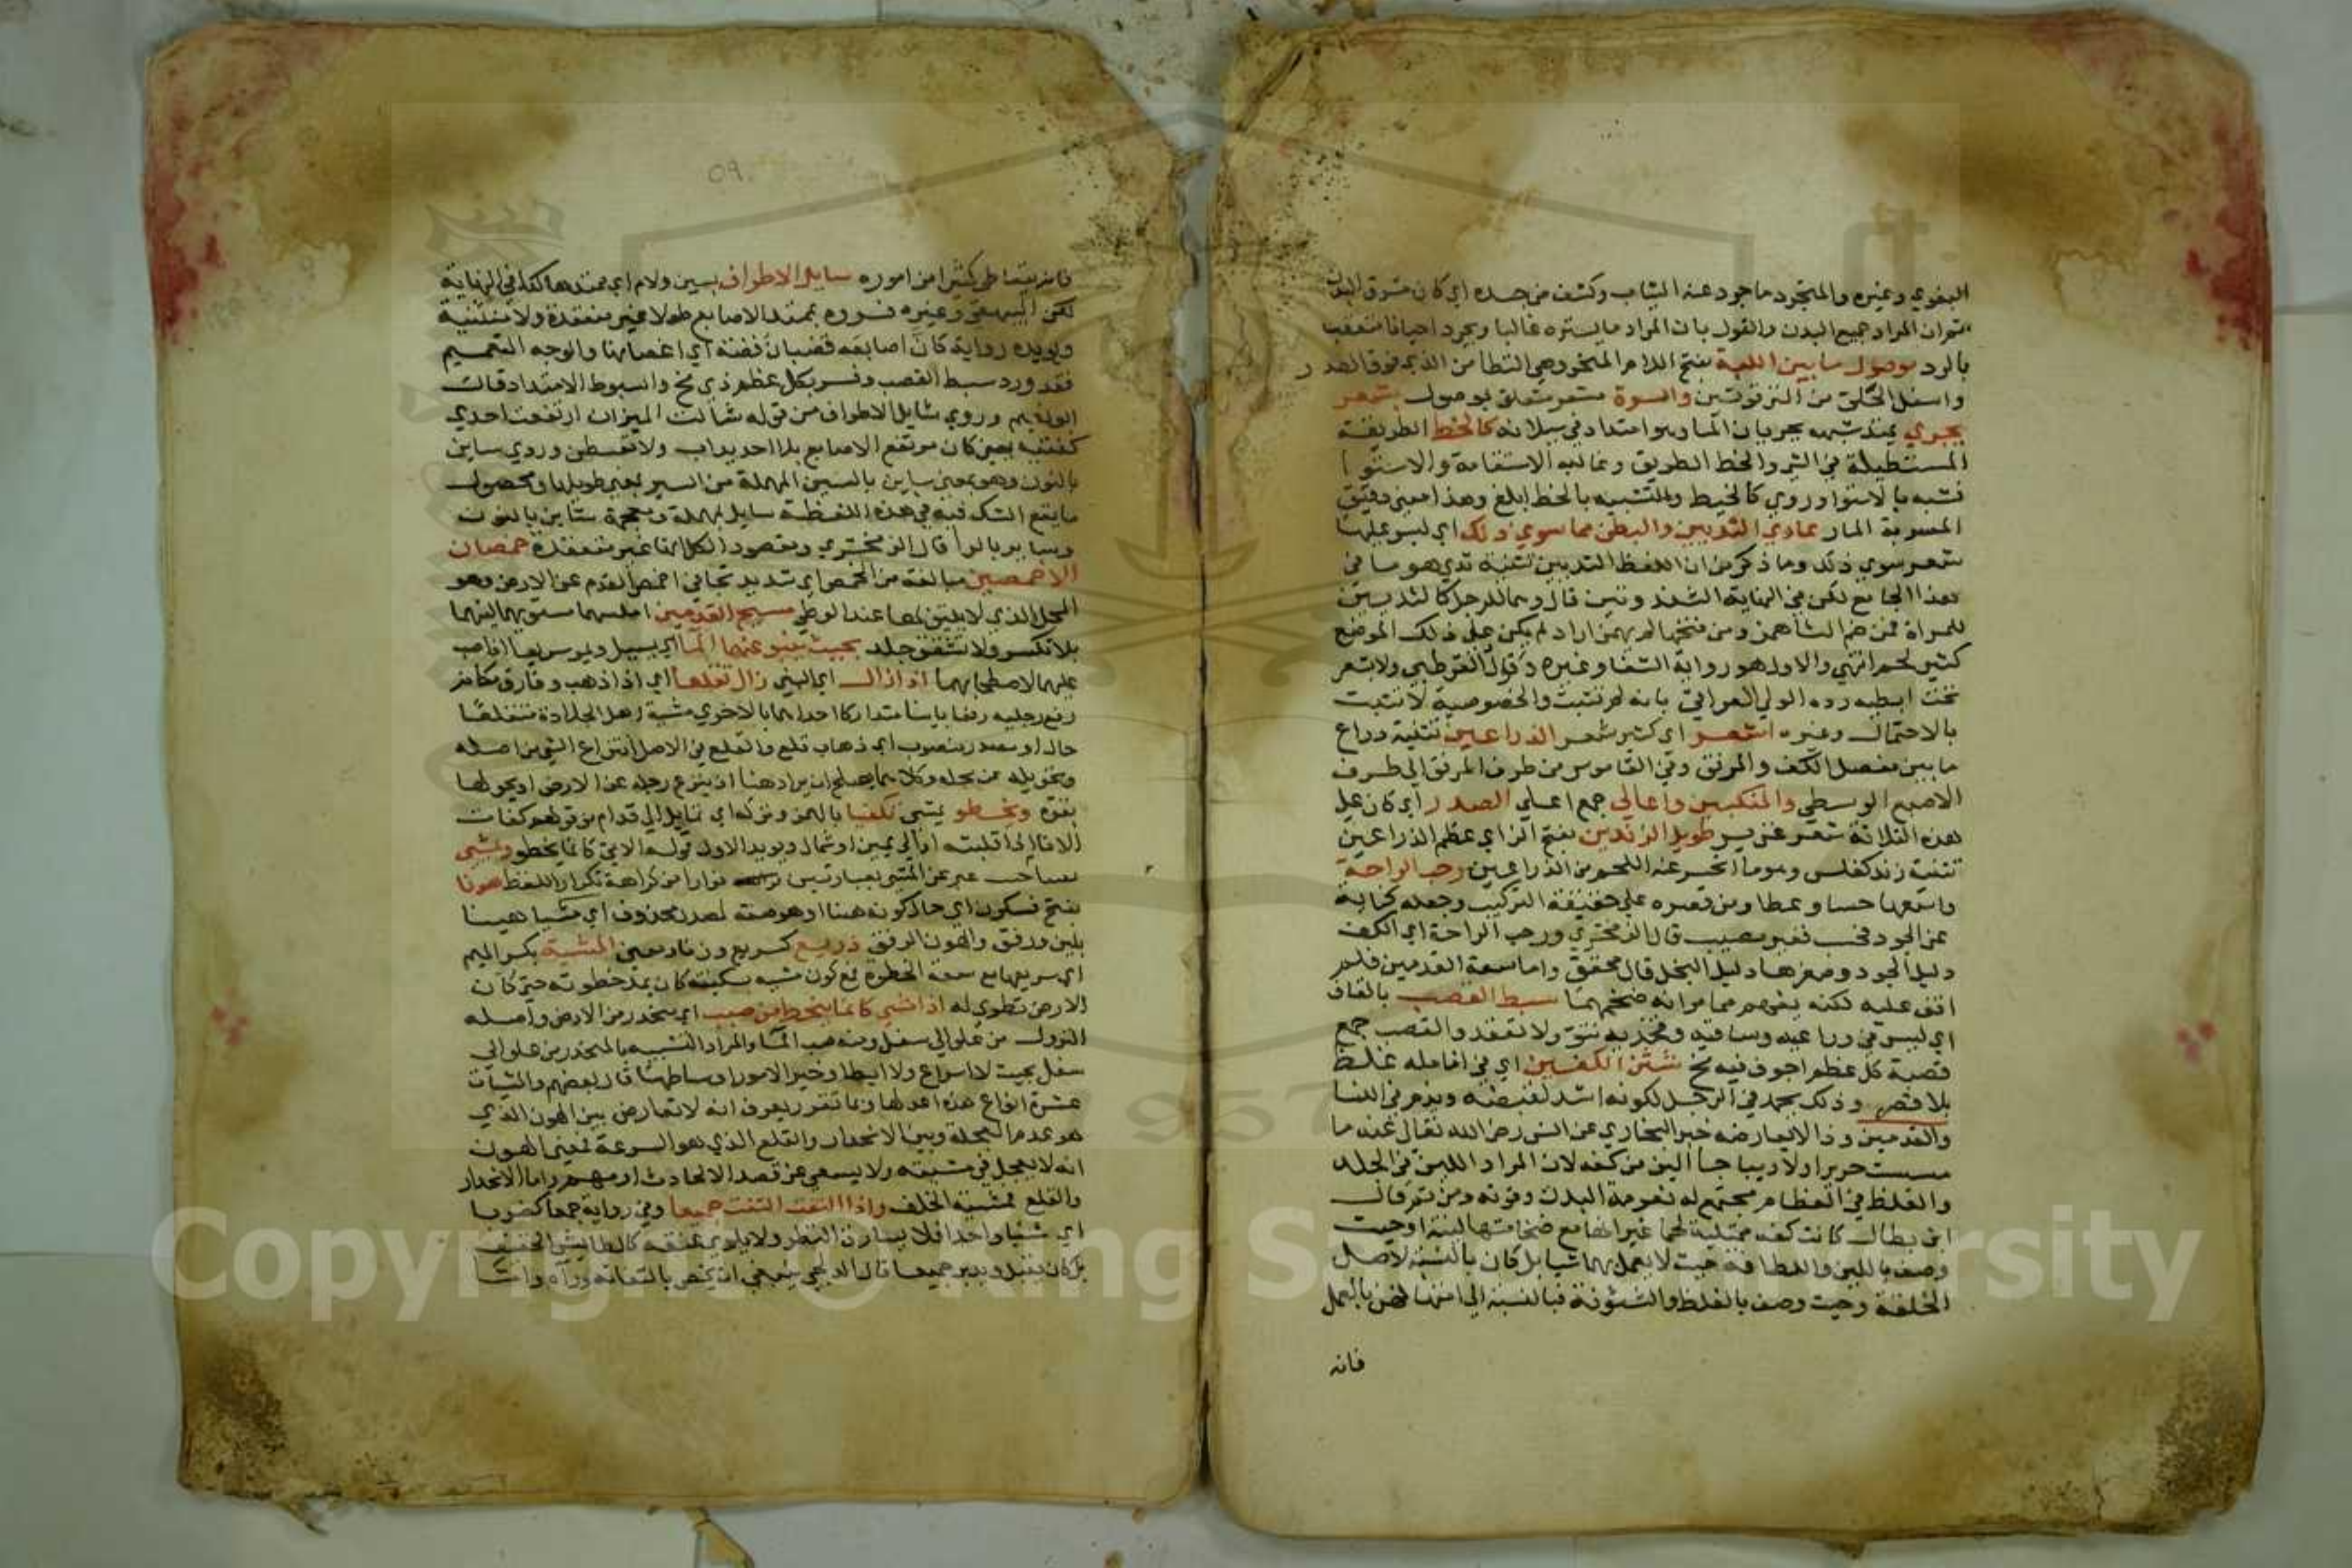 البغوي وغيره والمتجرد ما جرد عنه الثياب وكشف من جسده اي كان مشرق البدن
المراد جميع البدن والقول بان المراد ما يستره غالبا ويجرد احيانا متعقب
بالرد موصول ما بين اللبة بفتح اللام المنحر وهي التطامن الذي فوق الصدر
واسفل الحلق من الترقوتين والسرة متعلق بموصول بشعر
يجري يمتد شبهه بجريان الماء وهو امتداده في سيلانه كالخط الطريقة
المستطيلة في الشي والخط الطريق وغالبه الاستقامة والاستوا
فشبه بالاستوا وروي كالخيط والتشبيه بالخط ابلغ وهذا معنى دقيق
المسربة المار عاري الثديين والبطن مما سوي ذلك اي ليس عليها
شعر سوي ذلك وما ذكر من ان اللفظ الثديين تثنية ثدي هو ما في
هذا الجامع لكن في النهاية الثندوتين قال وهما للرجل كالثديين
للمراة فمن ضم الثا همز ومن فتحها لم يهمز اراد لم يكن علي ذلك الموضع
كثير لحم انتهي والاول هو رواية الشفا وغيره وقال القرطبي ولا شعر
تحت ابطيه رده الولي العراقي بانه لم يثبت والخصوصية لا تثبت
بالاحتمال وغيره اشعر اي كثير شعر الذراعين تثنية ذراع
ما بين مفصل الكف والمرفق وفي القاموس من طرف المرفق الي طرف
الاصبع الوسطي والمنكبين واعالي جمع اعلي الصدر اي كان علي
هذه الثلاثة شعر غزير طويل الزندين بفتح الزاي عظم الذراعين
تثنية زند كفلس وهو ما انحسر عنه اللحم من الذراعين رحب الراحة
واسعها حسا وعطا ومن قصره علي حقيقة التركيب وجعله كناية
عن الجود فحسب فغير مصيب قال الزمخشري ورحب الراحة اي الكف
دليل الجود وصغرها دليل البخل قال محقق واما سعة القدمين فلم
اقف عليه لكنه يفهم مما مر انه ضخمهما سبط القصب بالقاف
اي ليس في ذراعيه وساقيه وفخذيه نتو ولا تعقد والقصب جمع
قصبة كل عظم اجوف فيه مخ شثن الكفين اي في انامله غلظ
بلا قصر وذلك يحمد في الرجل لكونه اشد لقبضه ويذم في النسا
والقدمين وذا لا يعارضه خبر البخاري عن انس رضي الله تعالي عنه ما
مسست حريرا ولا ديباجا الين من كفه لان المراد اللين في الجلد
والغلظ في العظام مجتمع له نعومة البدن وقوته ومن ثم قال
ابن بطال كانت كفه ممتلية لحما غير انها مع ضخامتها لينة او حيث
وصف باللين واللطافة حيث لا يعمل بهما شيا بل كان بالنسبة لاصل
الخلقة وحيث وصف بالغلظ والشثونة فبالنسبة الي امتهانهن بالعمل
فانه
فانه يتعاطي كثيرا من اموره سايل الاطراف بسين ولام اي ممتدها كذا في النهاية
لكن البيهقي وغيره فسروه بممتد الاصابع طولا غير منعقدة ولا متثنية
ويويده رواية كان اصابعه قضبان فضة اي اغصانها والوجه التعميم
فقد ورد سبط القصب وفسر بكل عظم ذي مخ والسبوط الامتداد قالت
وروي شايل الاطراف من قوله شالت الميزان ارتفعت احدي
كفتيه يعني كان مرتفع الاصابع بلا احديداب ولا تقبض وروي ساين
بالنون وهو بمعني ساير بالسين المهملة من السير بمعني طويلها ومحصول
ما يقع الشك فيه في هذه اللفظة سايل بمهملة ومعجمة ساين بالنون
وساير بالرا قال الزمخشري ومقصود الكل انها غير متعقدة خمصان
الاخمصين مبالغة من الخمص اي شديد تجافي اخمص القدم عن الارض وهو
المحل الذي لا يلتصق بها عند الوطي مسيح القدمين املسهما مستويهما لينهما
بلا تكسر ولا تشقق جلد بحيث ينبو عنهما الما اي يسيل ويمر سريعا اذا صب
عليهما لاصطحابهما اذا زال اي النبي زال تقلعا اي اذا ذهب وفارق مكانه
رفع رجليه رفعا باينا متداركا احداهما بالاخري مشية اهل الجلادة فتقلعا
حال او مصدر منصوب اي ذهاب قلع والقلع في الاصل انتزاع الشي من اصله
وتحويله عن محله وكلاهما يصلح ان يراد هنا اذ ينزع رجله عن الارض او يحولها
بقوة ويخطو يمشي تكفيا بالهمز وتركه اي تمايل الي قدام من قولهم كفات
الانا اذا قلبته او الي يمين او شمال ويويد الاول قوله الاتي كانما يخطو ويمشي
عبر عن المشي بعبارتين فرارا من كراهة تكرار اللفظ هونا
بفتح فسكون اي حال كونه هينا او هو صفة لمصدر محذوف اي مشيا هينا
بلين ورفق والهون الرفق ذريع كسريع وزنا ومعني المشية بكسر الميم
اي سريعها مع سعة الخطوة فمع كون مشيه بسكينة كان يمد خطوته حتي كان
الارض تطوي له اذا مشي كانما ينحط من صبب اي منحدر من الارض واصله
النزول من علو الي سفل ومنه صب الما والمراد التشبيه بالمنحدر من علو الي
سفل بحيث لا اسراع ولا ابطا وخير الامور اوساطها قال بعضهم والمشيات
عشرة انواع هذه اعدلها وبما تقرر يعرف انه لا تعارض بين الهون الذي
هو عدم العجلة وبين الانحدار والتقلع الذي هو السرعة فمعني الهون
انه لا يعجل في مشيته ولا يسعي عن قصد الا لحادث امر مهم واما الانحدار
والقلع فمشيته الخلقية واذا التفت التفت جميعا وفي رواية جمعا كضربا
اي شيا واحدا فلا يسارق النظر ولا يلوي عنقه كالطايش الخفيف
بل كان يقبل ويدبر جميعا قال الدلجي ينبغي ان يخص بالتفاته وراه واما